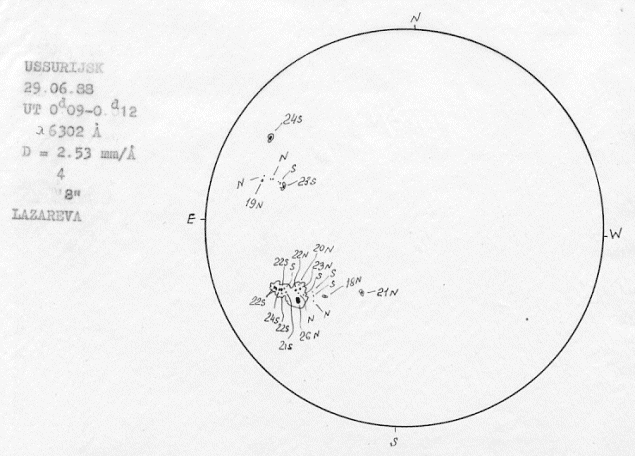 USSURIJSK
29.06.88
UT 0ᵈ09-0.ᵈ12
λ 6302 Å
D = 2.53 mm/Å
4
"8"
LAZAREVA
N
24S
N
S
N
23S
19N
E
W
20N
22N
S
22S
23N
S
S
S
18N
21N
22S
24S
22S
N
N
26N
21S
S